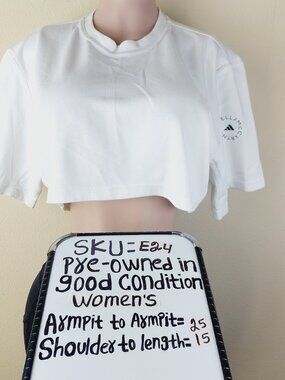 SKU:- E24
Pre-owned in
good condition
Women's
Armpit to Armpit= 25
Shoulder to length= 15